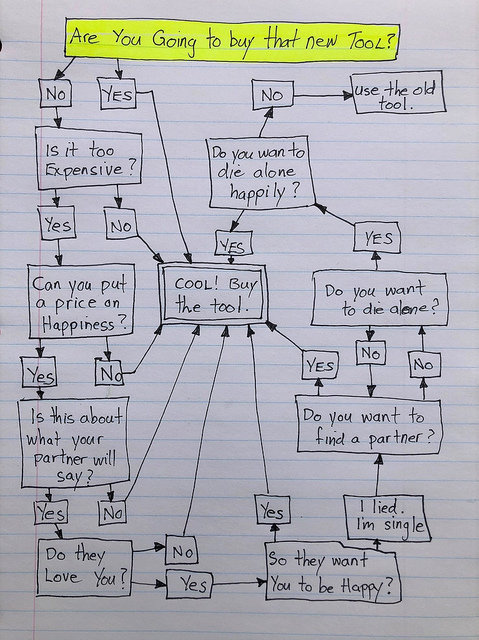 Are You Going to buy that new TOOL?
No
YES
No
use the old
tool.
Is it too
Expensive?
Do you wan to
die alone
happily?
Yes
No
YES
YES
Can you put
a price on
Happiness?
COOL! Buy
the tool.
Do you want
to die alone?
Yes
No
YES
No
No
Is this about
what your
partner will
say?
Do you want to
find a partner?
Yes
No
Yes
I lied.
I'm single
Do they
Love You?
No
Yes
So they want
You to be Happy?